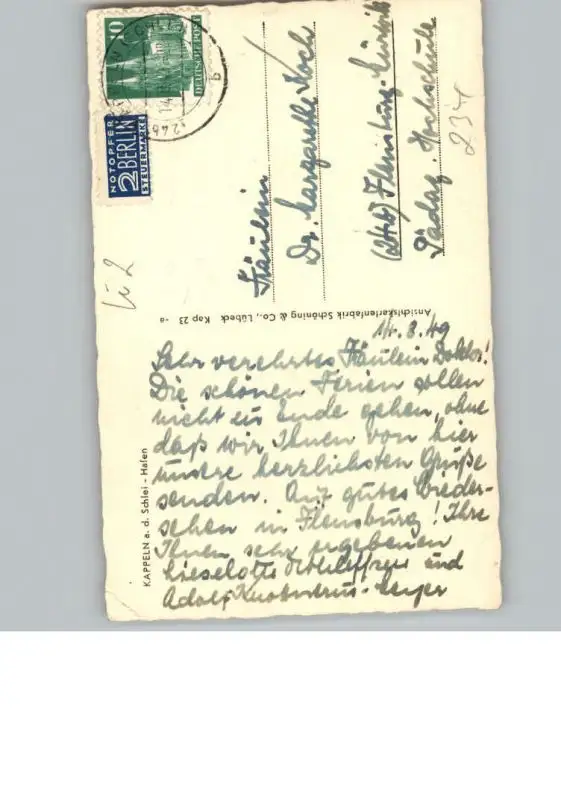 14. 8. 49
Sehr verehrtes Fräulein Doktor!
Die schönen Ferien sollen
nicht zu Ende gehen, ohne
daß wir Ihnen von hier
unsere herzlichsten Grüße
senden. Auf gutes Wieder-
sehen in Flensburg! Ihre
Ihnen sehr ergebenen
Lieselotte und
Adolf
KAPPELN a. d. Schlei - Hafen
Ansichtskartenfabrik Schöning & Co., Lübeck Kap 23
Fräulein
Dr. Margarethe Koch
(24b) Flensburg-
Pädag. Hochschule
234
10
DEUTSCHE POST
NOTOPFER
2 BERLIN
STEUERMARKE
24b
b